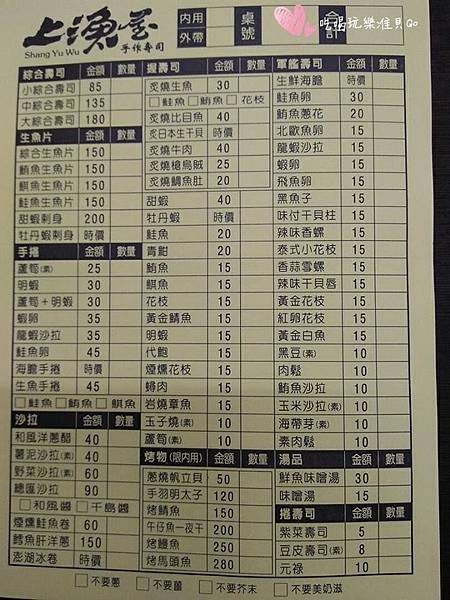 上漁屋
Shang Yu Wu
手作壽司
內用
外帶
桌號
合計
吃喝玩樂佳貝Go
綜合壽司 金額 數量
小綜合壽司 85
中綜合壽司 135
大綜合壽司 180
生魚片 金額 數量
綜合生魚片 150
鮪魚生魚片 150
鯕魚生魚片 150
鮭魚生魚片 150
甜蝦刺身 200
牡丹蝦刺身 時價
手捲 金額 數量
蘆筍(素) 25
明蝦 30
蘆筍+明蝦 30
蝦卵 35
龍蝦沙拉 35
鮭魚卵 45
海膽手捲 時價
生魚手捲 45
□鮭魚□鮪魚□鯕魚
沙拉 金額 數量
和風洋蔥醋 40
薯泥沙拉(素) 40
野菜沙拉(素) 60
總匯沙拉 90
□和風醬 □千島醬
煙燻鮭魚卷 60
鱈魚肝洋蔥 150
澎湖冰卷 時價
握壽司 金額 數量
炙燒生魚 30
□鮭魚□鮪魚□花枝
炙燒比目魚 40
炙日本生干貝 時價
炙燒牛肉 40
炙燒槍烏賊 25
炙燒鯛魚肚 20
甜蝦 40
牡丹蝦 時價
鮭魚 20
青魽 20
鮪魚 15
鯕魚 15
花枝 15
黃金鯖魚 15
明蝦 15
代鮑 15
煙燻花枝 15
蟳肉 15
岩燒章魚 15
玉子燒(素) 10
蘆筍(素) 10
烤物(限內用) 金額 數量
蔥燒帆立貝 50
手羽明太子 120
烤鯖魚 150
午仔魚一夜干 200
烤鰻魚 250
烤馬頭魚 280
軍艦壽司 金額 數量
生鮮海膽 時價
鮭魚卵 30
鮪魚蔥花 20
北歐魚卵 15
龍蝦沙拉 15
蝦卵 15
飛魚卵 15
黑魚子 15
味付干貝柱 15
辣味香螺 15
泰式小花枝 15
香蒜雪螺 15
辣味干貝唇 15
黃金花枝 15
紅卵花枝 15
黃金白魚 15
黑豆(素) 10
肉鬆 10
鮪魚沙拉 10
玉米沙拉(素) 10
海帶芽(素) 10
素肉鬆 10
湯品 金額 數量
鮮魚味噌湯 30
味噌湯 15
捲壽司 金額 數量
紫菜壽司 5
豆皮壽司(素) 8
元祿 10
□不要蔥 □不要薑 □不要芥末 □不要美奶滋